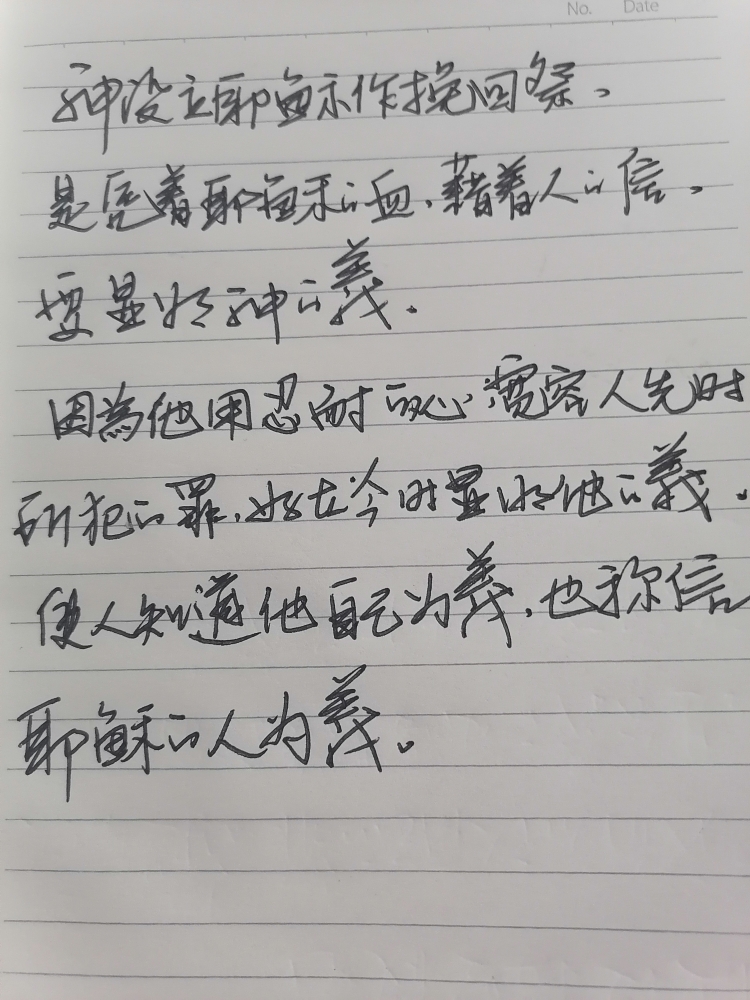 No. Date
神设立耶穌示作挽回祭、
是凭着耶穌的血、藉着人的信、
要显明神的義.
因為他用忍耐的心宽容人先时
所犯的罪、好在今时显明他的義。
使人知道他自己为義,也称信
耶穌的人为義。